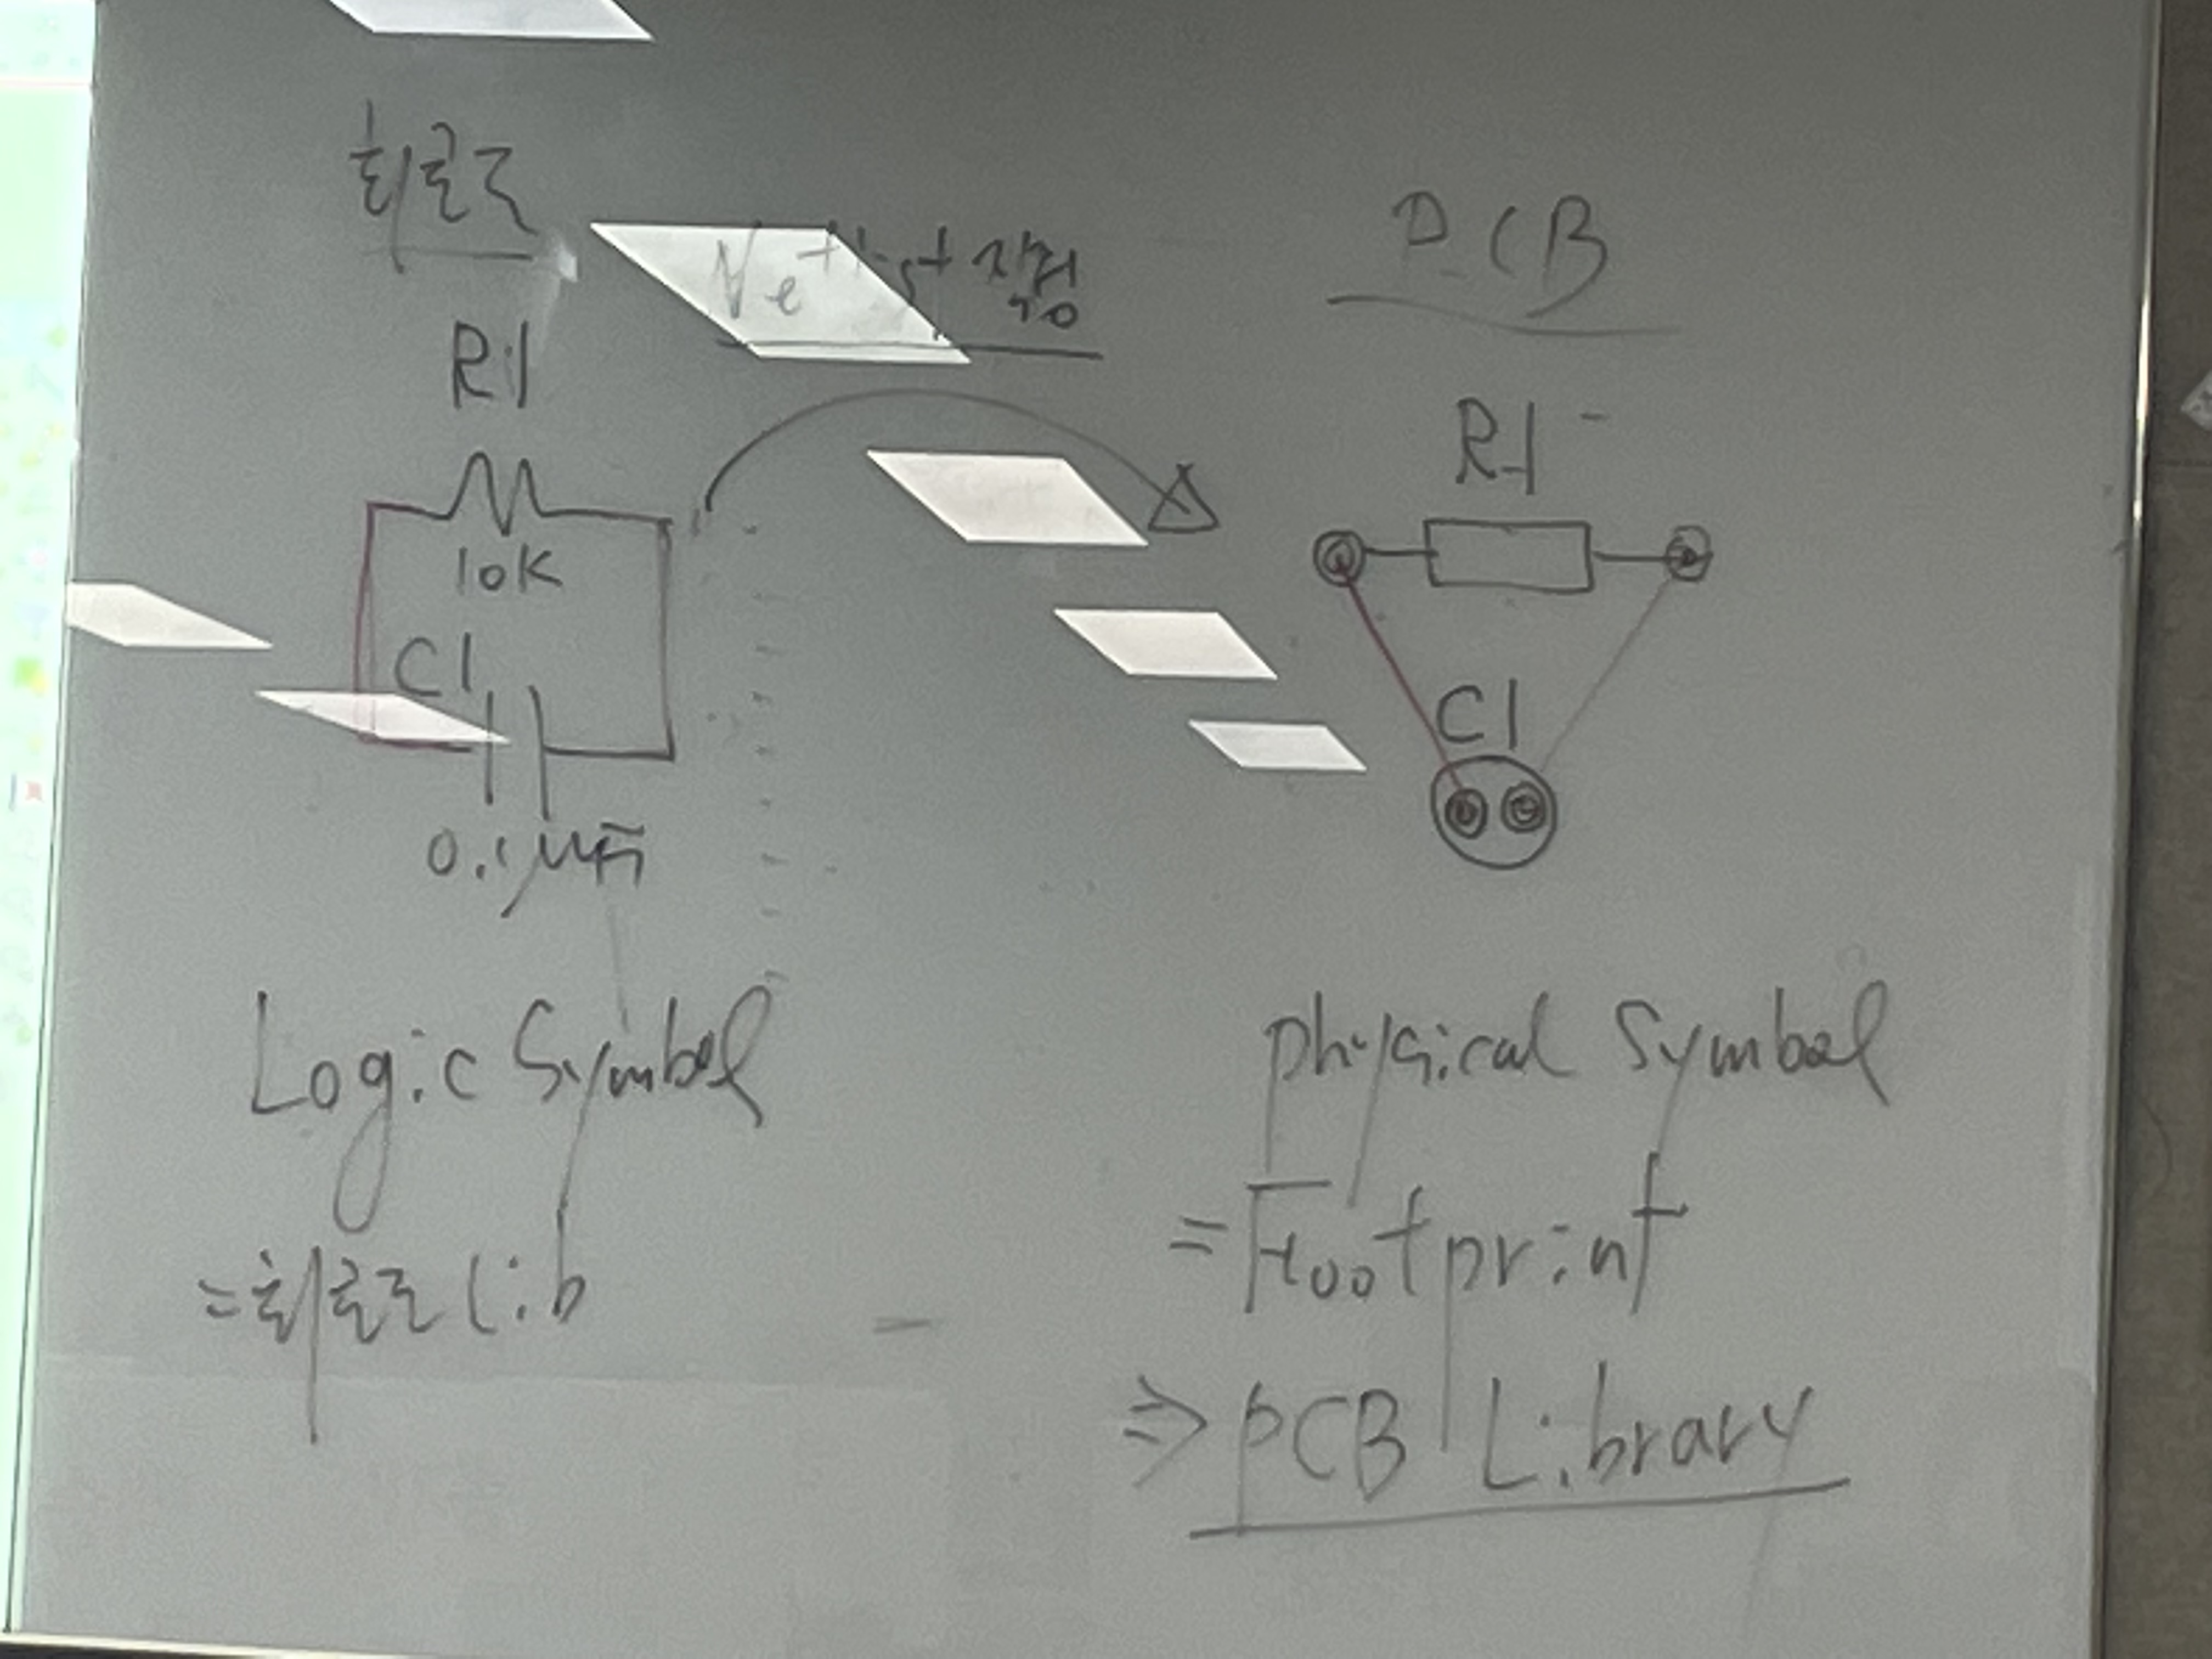 회로도
Netlist
PCB
R1
10K
C1
R1
C1
Logic Symbol
=회로도 Lib
physical Symbol
=Footprint
⇒ PCB Library